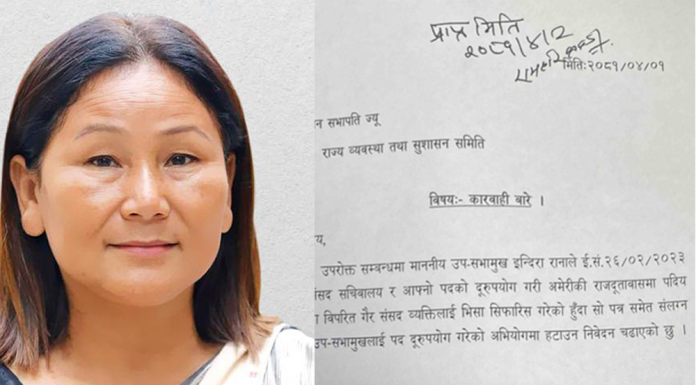 प्राप्त मिति
२०८१/४/२
मिति:२०८१/०४/०१
न सभापति ज्यू
राज्य व्यवस्था तथा सुशासन समिति
विषय:- कारवाही बारे ।
य,
उपरोक्त सम्बन्धमा माननीय उप-सभामुख इन्दिरा रानाले ई.सं.२६/०२/२०२३
ंसद सचिवालय र आफ्नो पदको दूरुपयोग गरी अमेरीकी राजदूतावासमा पदिय
ा विपरित गैर संसद व्यक्तिलाई भिसा सिफारिस गरेको हुँदा सो पत्र समेत संलग्न
उप-सभामुखलाई पद दूरुपयोग गरेको अभियोगमा हटाउन निवेदन चढाएको छु ।